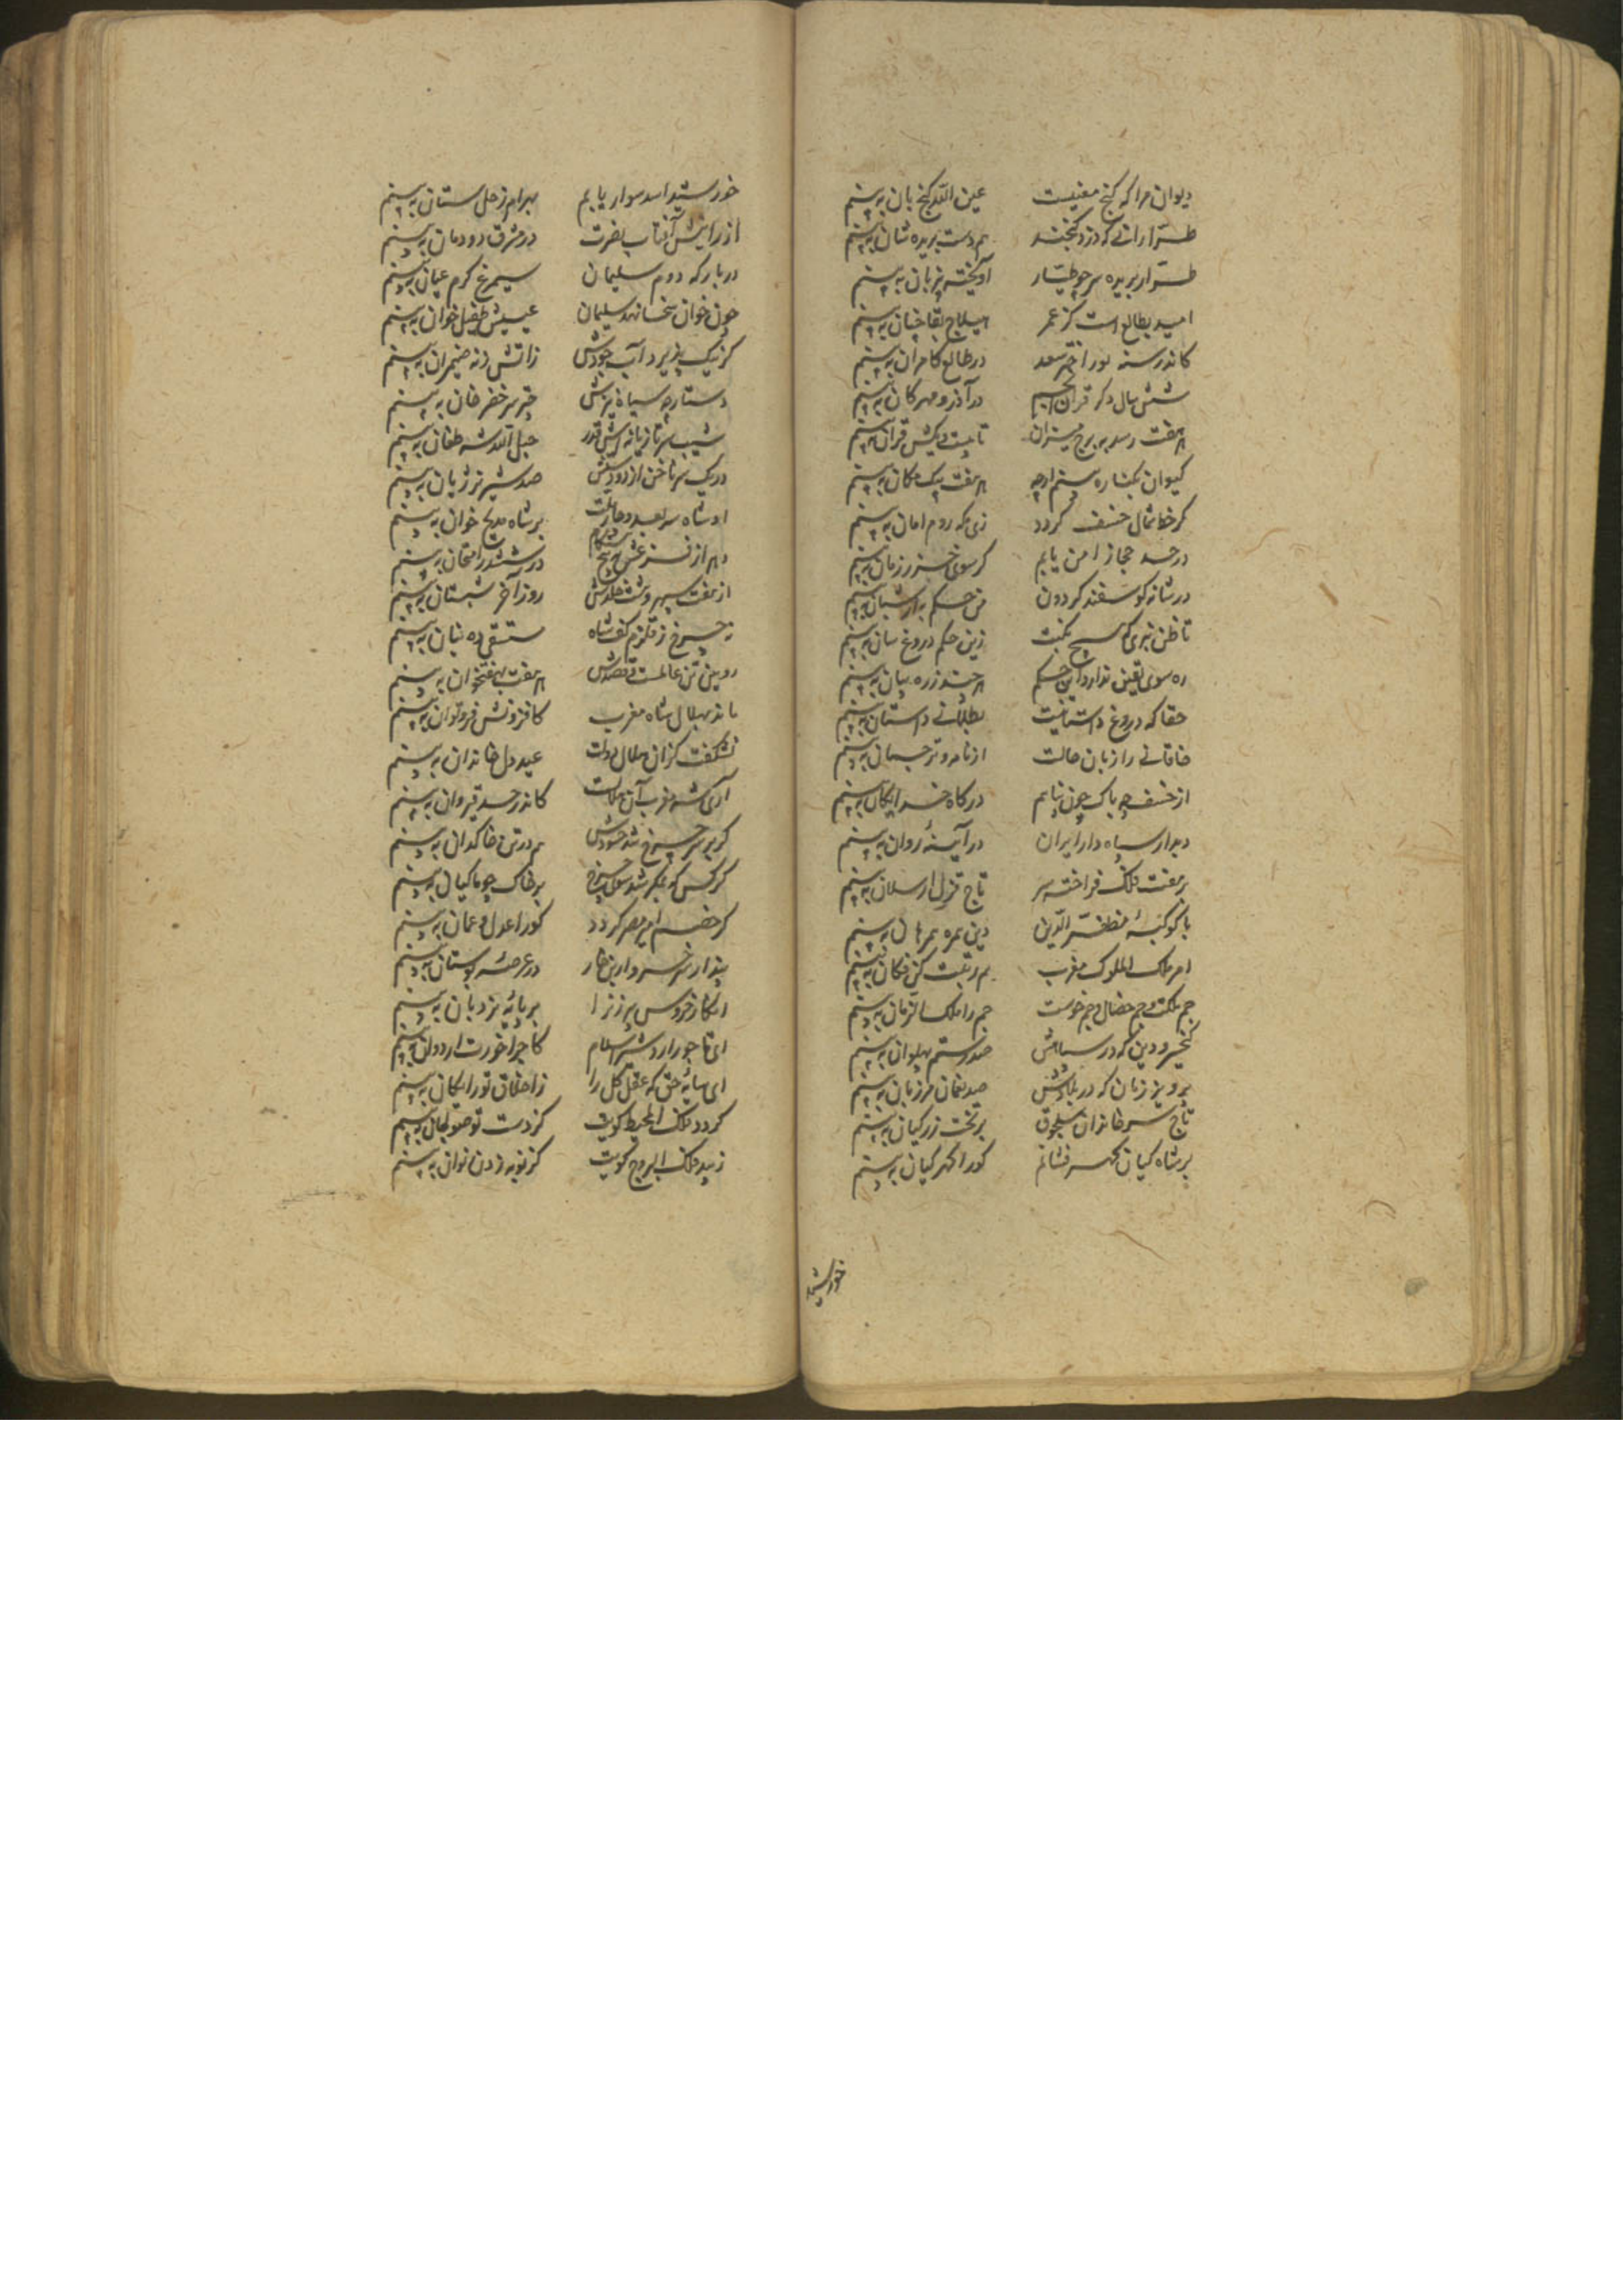 دیوان مرا که گنج معنیست عین اللّه گنج بان به بینم
طرّارانی که دزد گنجند هم دست بریده شان به بینم
طرّار بریده سر چو طیّار آویخته بر زبان به بینم
امید بطالع است کز عمر هیلاج بقا چنان به بینم
کاندر سنه ثور اختر سعد در طالع کامران به بینم
شش سال دکر قران انجم در آذر و مهرکان به بینم
هر هفت رسد به برج میزان تا بیست و یکش قران به بینم
کیوان بکناره بینم ارچه هر هفت بیک مکان به بینم
کر خط شمال خسف کردد زی مکه روم امان به بینم
در حد حجاز امن یابم کر سوی خزر زمان به بینم
در شانه کوسفند کردون من حکم به از شبان به بینم
تا ظن نبری که هیچ نکبت زین حکم دروغ سان به بینم
ره سوی یقین ندارد این حکم هر چند ره بیان به بینم
حقا که دروغ داستانیست بطلانی داستان به بینم
خاقانی را زبان حالت از نامه ترجمان به بینم
از خسف چه باک چون پناهم درکاه خدایکان به بینم
دیدار سپاه دار ایران در آینهٔ روان به بینم
بر هفت فلک فراخته سر تاج قزل ارسلان به بینم
با کوکبهٔ مظفّر الدّین دین همره همرهان به بینم
امر ملک الملوک مغرب هم رتبت کن فکان به بینم
جم ملکت و جم خصال و جم خوست جم را ملک الزمان به بینم
کیخسرو دین که در سپاهش صد رستم پهلوان به بینم
پرویز زمان که در بلادش صد نعمان مرزبان به بینم
تاج سر خاندان سلجوق بر تخت زر کیان به بینم
بر شاه کیان کهر فشانم کورا کهر کیان به بینم
خورشید
خورشید اسد سوار یابم بهرام زحل ستان به بینم
از رایتش آفتاب نصرت در مشرق دودمان به بینم
در بارکه دوم سلیمان سیمرغ کرم عیان به بینم
چون خوان سخا نهد سلیمان عیسیش طفیل خوان به بینم
کز نیک پذیرد آب جودش ز اتش زنه ضیمران به بینم
دستارچه سیاه نیزش چتر سر خضر خان به بینم
شیب سر تازیانه اش قدر حبل اللّه شه طغان به بینم
در یک سر ناخن از دو دستش صد شیر نر ژیان به بینم
او شاه سه بعد و چار ملت بر شاه مدیح خوان به بینم
در ششدر امتحان به بینم
از هفت سپهر و هشت خلدش روز آخر شبستان به بینم
نه چرخ ز قلزم کف شاه مستسقی ده بنان به بینم
رویین تن عالمست و قصدش هر هفت به هفتخوان به بینم
ماند بهلال شاه مغرب کافزونش فر و توان به بینم
نشکفت کزان هلال دولت عید دل خاندان به بینم
آری شه مغرب آن هلالست کاندر حد قیروان به بینم
کر بر سر چرخ شد حسودش هم در تن خاکدان به بینم
کرکس که بمکر شد سوی چرخ بر خاک چو ماکیان به بینم
کر خصم امیر مصر کردد کورا عدل و عمان به بینم
پندار سر خر و ار بن خار در عرصهٔ بوستان به بینم
انکار خروس پیر زن را بر پایهٔ نردبان به بینم
ای تاجور اردشیر اسلام کاجرا خورت اردوان به بینم
ای سایهٔ حق که عقل کل را ز اخلاق تو رایکان به بینم
کردد فلک المحیط کویت کز دست تو صولجان به بینم
زیبد فلک البروج کویت کز نوبه زدن نوان به بینم